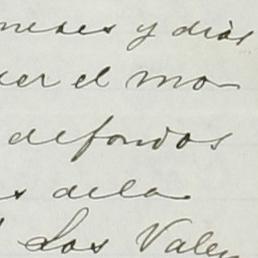 meses y dias
cer el mo
defondos
s dela
Los Valen